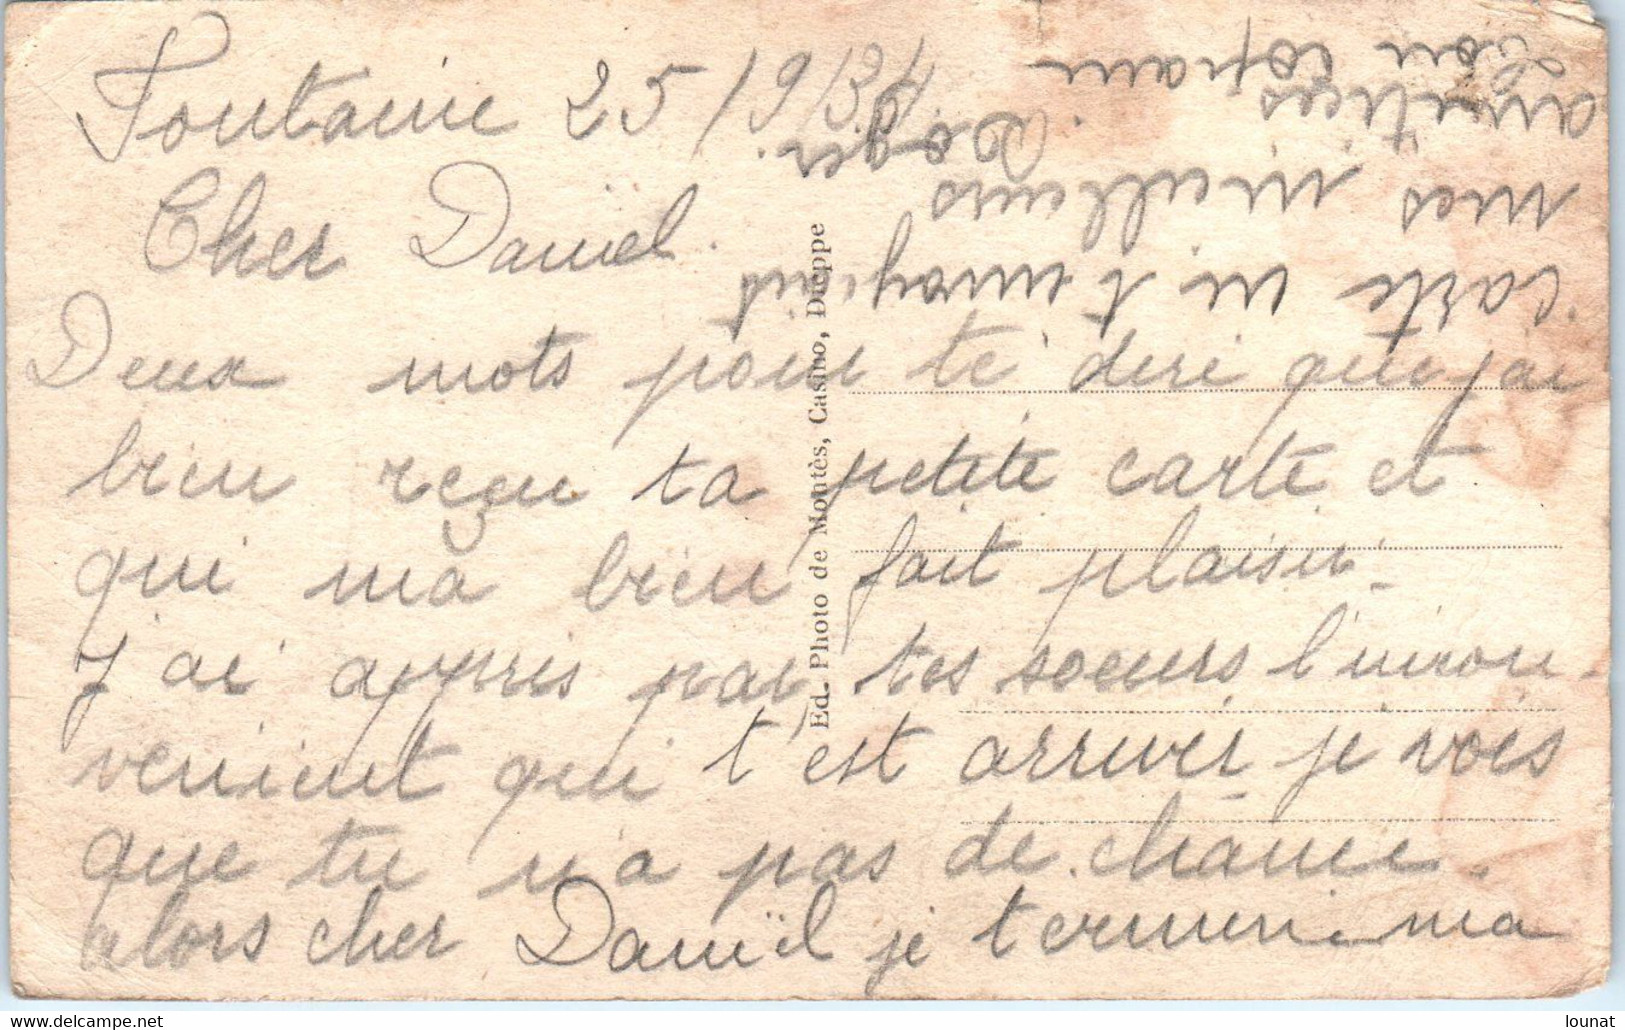 Fontaine 25/9/34
Cher Daniel.
Deux mots pour te dire que j'ai
bien reçu ta petite carte et
qui ma bien fait plaisir.
J'ai appris par tes soeurs l'incon-
venient qui t'est arriver je vois
que tu n'a pas de chance.
alors cher Daniel je termine ma
carte en t'envoyant
mes meilleurs
amitiées
Ton copain
Roger.
Ed. Photo de Montès, Casino, Dieppe
delcampe.net
lounat